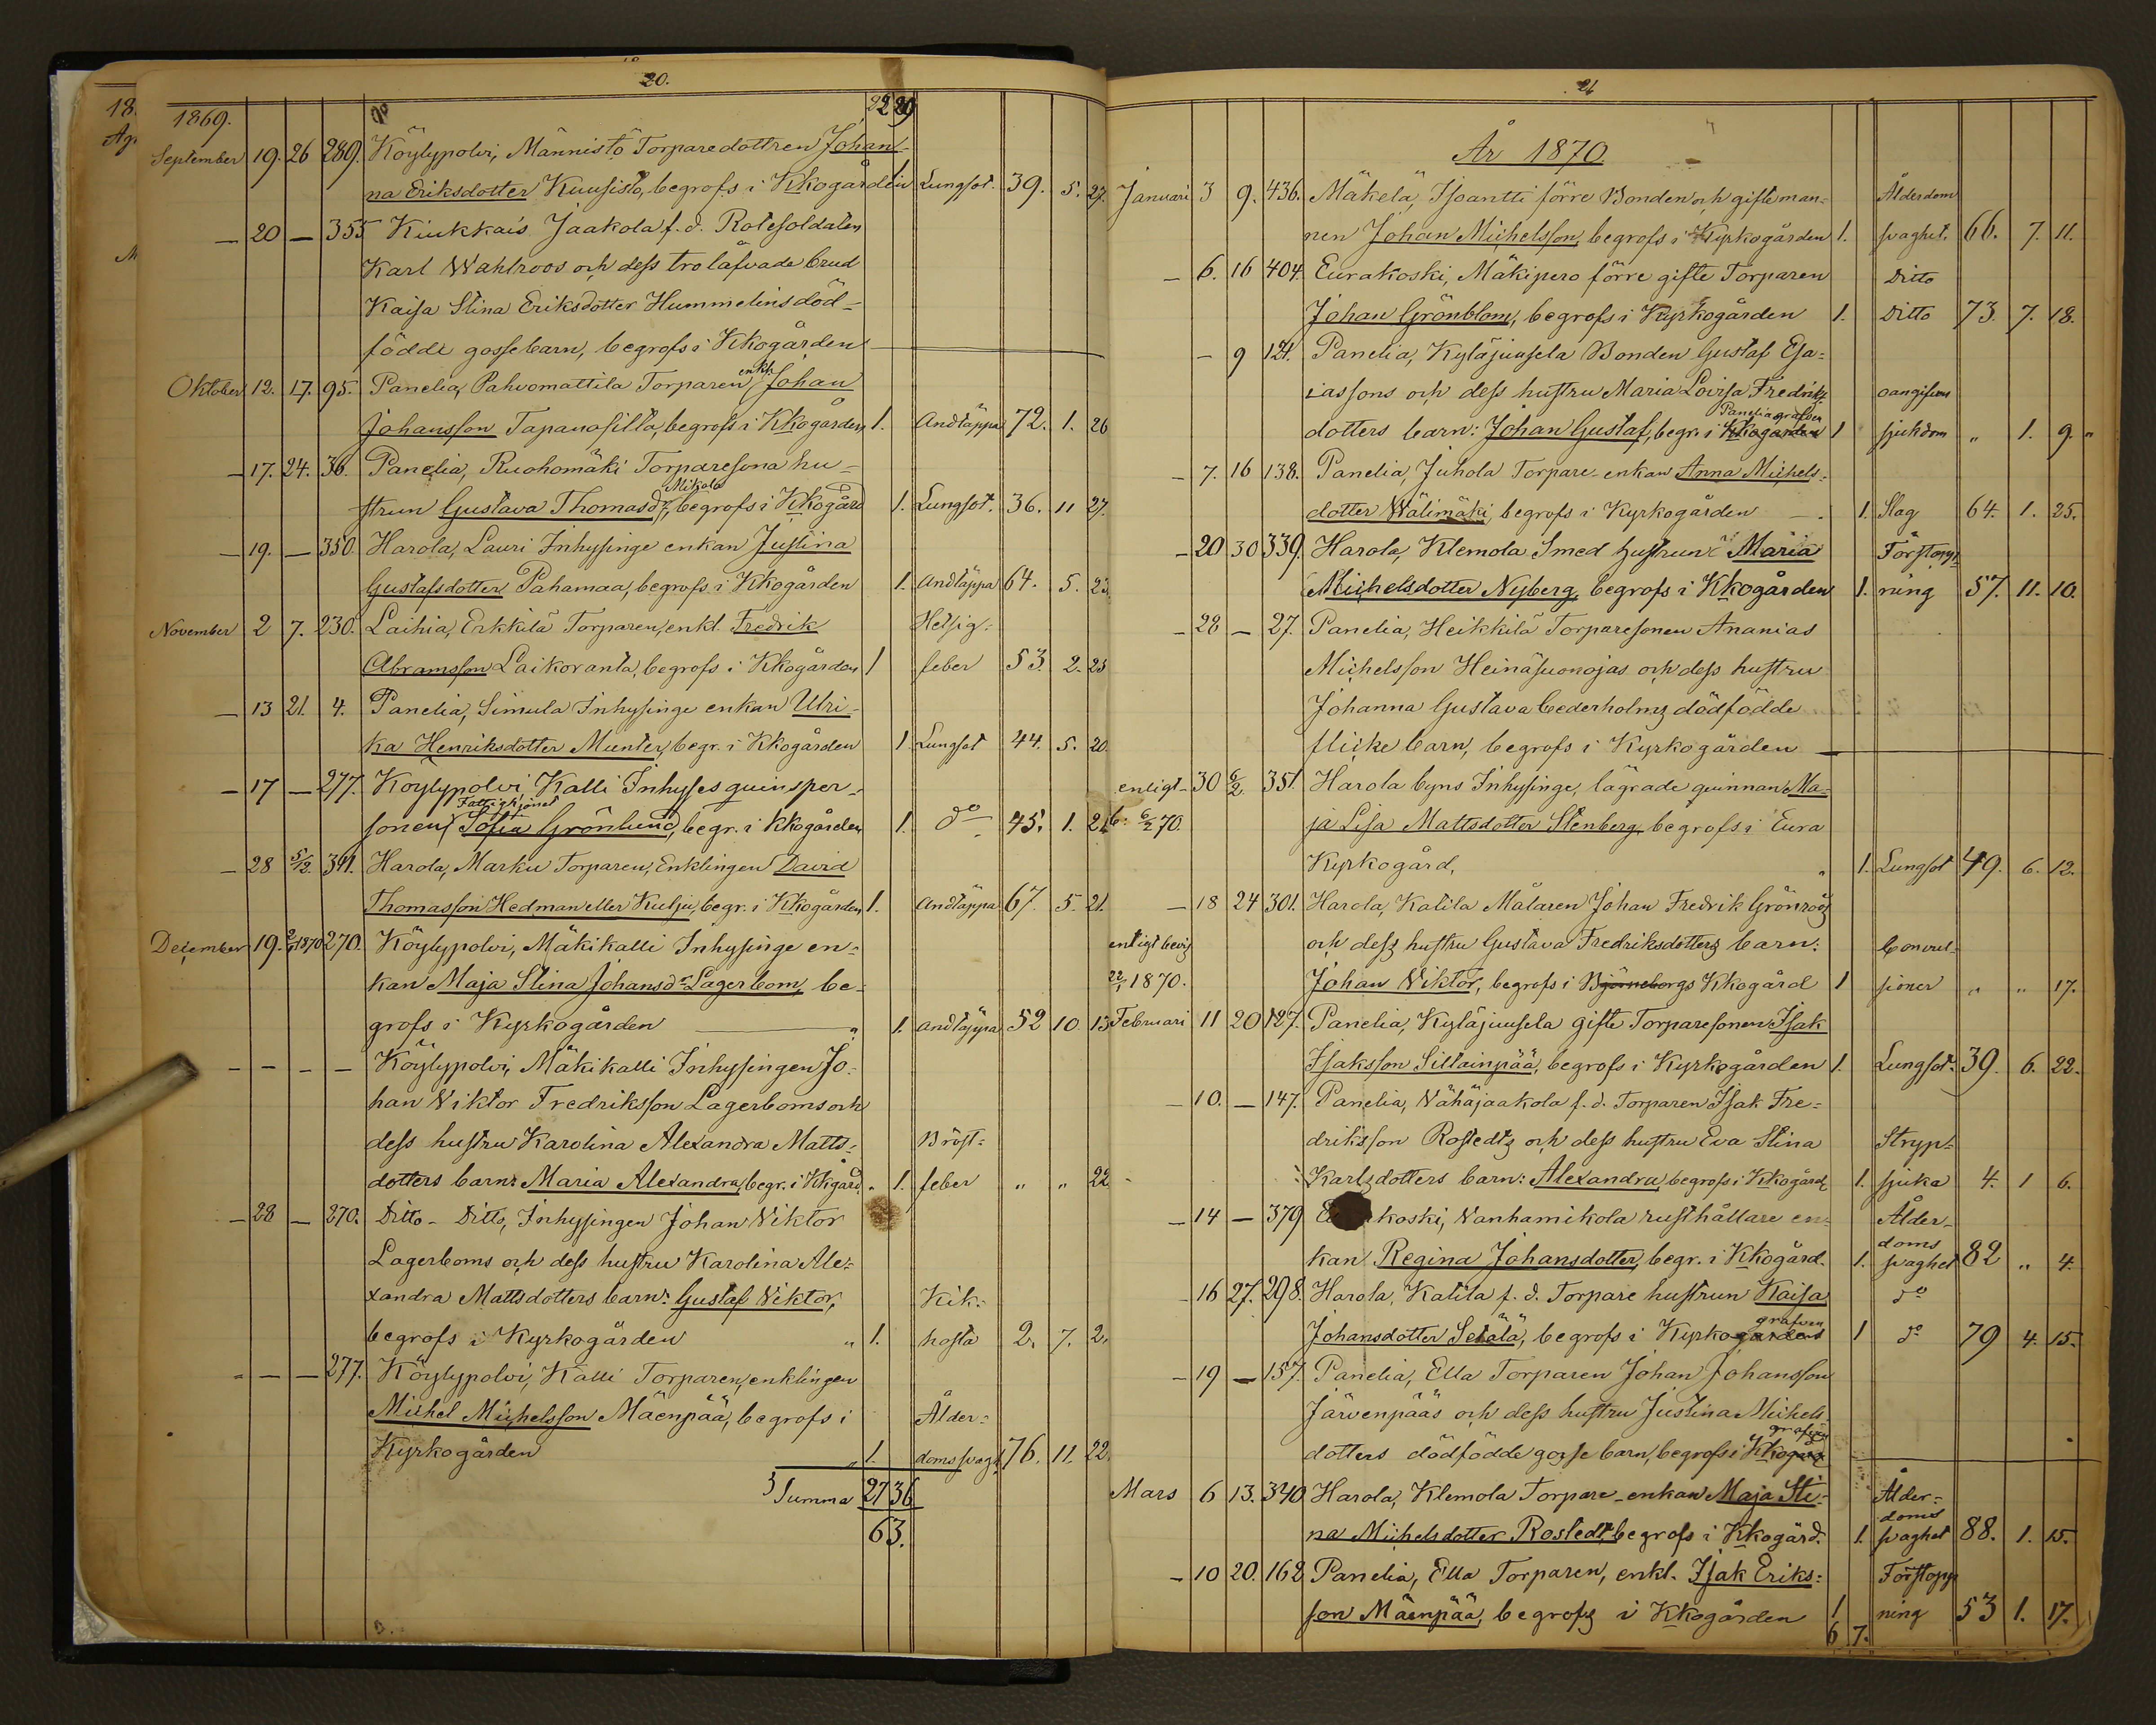 20.
1869. 22 29
September 19. 26 289. Köylypolvi, Männistö Torparedottren Johan-
na Eriksdotter Kuusisto, begrofs i Kkogården 1 Lungsot. 39. 5. 27.
— 20 — 355 Kiukkais Jaakola f. d. Rotesoldaten
Karl Wahlroos och dess trolåfvade brud
Kaisa Stina Eriksdotter Hummelins död-
födde gossebarn, begrofs i Kkogården
Oktober 12. 17. 95. Panelia, Pahvomattila Torparen enkl. Johan
Johansson Tapanosilta, begrofs i Kkogården 1. Andtäppa 72. 1. 26
— 17. 24. 36. Panelia, Ruohomäki Torparesona hu-
strun Gustava Thomasdr Mikola, begrofs i Kkogård 1. Lungsot. 36. 11 27.
— 19. — 350. Harola, Lauri Inhysinge enkan Justina
Gustafsdotter Pahamaa, begrofs i Kkogården 1. Andtäppa 64. 5. 23.
November 2 7. 230. Laihia, Erkkilä Torparen, enkl. Fredrik Hetsig-
Abramsson Laikoranta, begrofs i Kkogården 1 feber 53. 2. 25
— 13 21. 4. Panelia, Simula Inhysinge enkan Ulri-
ka Henriksdotter Munter, begr. i Kkogården 1 Lungsot 44. 5. 20.
— 17 — 277. Köylypolvi Kalli Inhyses quinsper-
sonen Fattighjonet Sofia Grönlund, begr. i Kkogården 1. do 45. 1. 21
— 28 5/12. 341. Harola, Marku Torparen, Enklingen David
Thomasson Hedman eller Kulju, begr. i Kkogården 1. Andtäppa 67. 5. 21.
December 19. 2/1 1870 270. Köylypolvi, Mäkikalli Inhysinge en-
kan Maja Stina Johansdr Lagerbom, be-
grofs i Kyrkogården „ 1. Andtäppa 52 10. 13
— — — — Köylypolvi, Mäkikalli Inhysingen Jo-
han Viktor Fredriksson Lagerboms och
dess hustru Karolina Alexandra Matts- Bröst-
dotters barn: Maria Alexandra, begr. i Kkgård. 1. feber „ „ 22
— 28 — 270. Ditto - Ditto, Inhysingen Johan Viktor
Lagerboms och dess hustru Karolina Ale-
xandra Mattsdotters barn: Gustaf Viktor, Kik-
begrofs i Kyrkogården „ 1. hosta 2. 7. 2.
— — — 277. Köylypolvi, Kalli Torparen, enklingen
Michel Michelsson Mäenpää, begrofs i Ålder-
Kyrkogården „ 1. domssvagt 76. 11. 22.
Summa 27 36
63.
21
År 1870
Januari 3 9. 436. Mäkelä, Isoantti förre Bonden och gifteman- Ålderdom
nen Johan Michelsson, begrofs i Kyrkogården 1. svaghet. 66. 7. 11.
— 6. 16 404. Eurakoski, Mäkipero förre gifte Torparen Ditto
Johan Grönblom, begrofs i Kyrkogården 1. Ditto 73. 7. 18.
— 9 121. Panelia, Kyläjuusela Bonden Gustaf Esa-
iassons och dess hustru Maria Lovisa Fredriks- oangifven
dotters barn: Johan Gustaf, begr. i Kkogården Panelia grafven 1 sjukdom „ 1. 9 „
— 7. 16 138. Panelia, Juhola Torpare-enkan Anna Michels-
dotter Wälimäki, begrofs i Kyrkogården — 1. Slag 64. 1. 25.
— 20 30 339. Harola, Klemola Smed hustrun Maria Förstopp-
Michelsdotter Nyberg, begrofs i Kkogården 1. ning 57. 11. 10.
— 28 — 27. Panelia, Heikkilä Torparesonen Ananias
Michelsson Heinäsuonojas och dess hustru
Johanna Gustava Cederholms dödfödde
flicke barn, begrofs i Kyrkogården —
enligt 30 6/2. 351. Harola byns Inhysinge, lägrade quinnan Ma-
b: 6/2 70. ja Lisa Mattsdotter Stenberg begrofs i Eura
Kyrkogård, „ 1. Lungsot 49. 6. 12.
— 18 24 301. Harola, Katila Målaren Johan Fredrik Grönroos
enligt bevis och dess hustru Gustava Fredriksdotters barn: Convul-
22/1 1870. Johan Viktor, begrofs i Björneborgs Kkogård 1 sioner „ „ 17.
Februari 11 20 127. Panelia, Kyläjuusela gifte Torparesonen Isak
Isaksson Sillainpää, begrofs i Kyrkogården 1. Lungsot. 39. 6. 22.
— 10. — 147. Panelia, Vähäjaakola f. d. Torparen Isak Fre-
driksson Rostedts och dess hustru Eva Stina Stryp-
Karlsdotters barn: Alexandra, begrofs i Kkogård 1. sjuka 4. 1 6.
— 14 — 379 koski, Vanhamikola rusthållare en- Ålder-
kan Regina Johansdotter, begr. i Kkogård. 1. doms svaghet 82 „ 4.
— 16 27. 298. Harola, Katila f. d. Torpare hustrun Kaisa do
Johansdotter Setälä, begrofs i Kyrkogårdens grafven 1 do 79 4. 15.
— 19 — 157. Panelia, Ella Torparen Johan Johansson
Järvenpääs och dess hustru Justina Michels-
dotters dödfödde gosse barn, begrofs i Kkogård grafven
Mars 6 13. 340. Harola, Klemola Torpare-enkan Maja Sti- Ålder-
na Michelsdotter Rostedt, begrofs i Kkogård. 1. doms svaghet 88. 1. 15.
— 10 20. 162 Panelia, Ella Torparen, enkl. Isak Eriks- Förstopp
son Mäenpää, begrofs i Kkogården 1 ning 53 1. 17.
6 7.